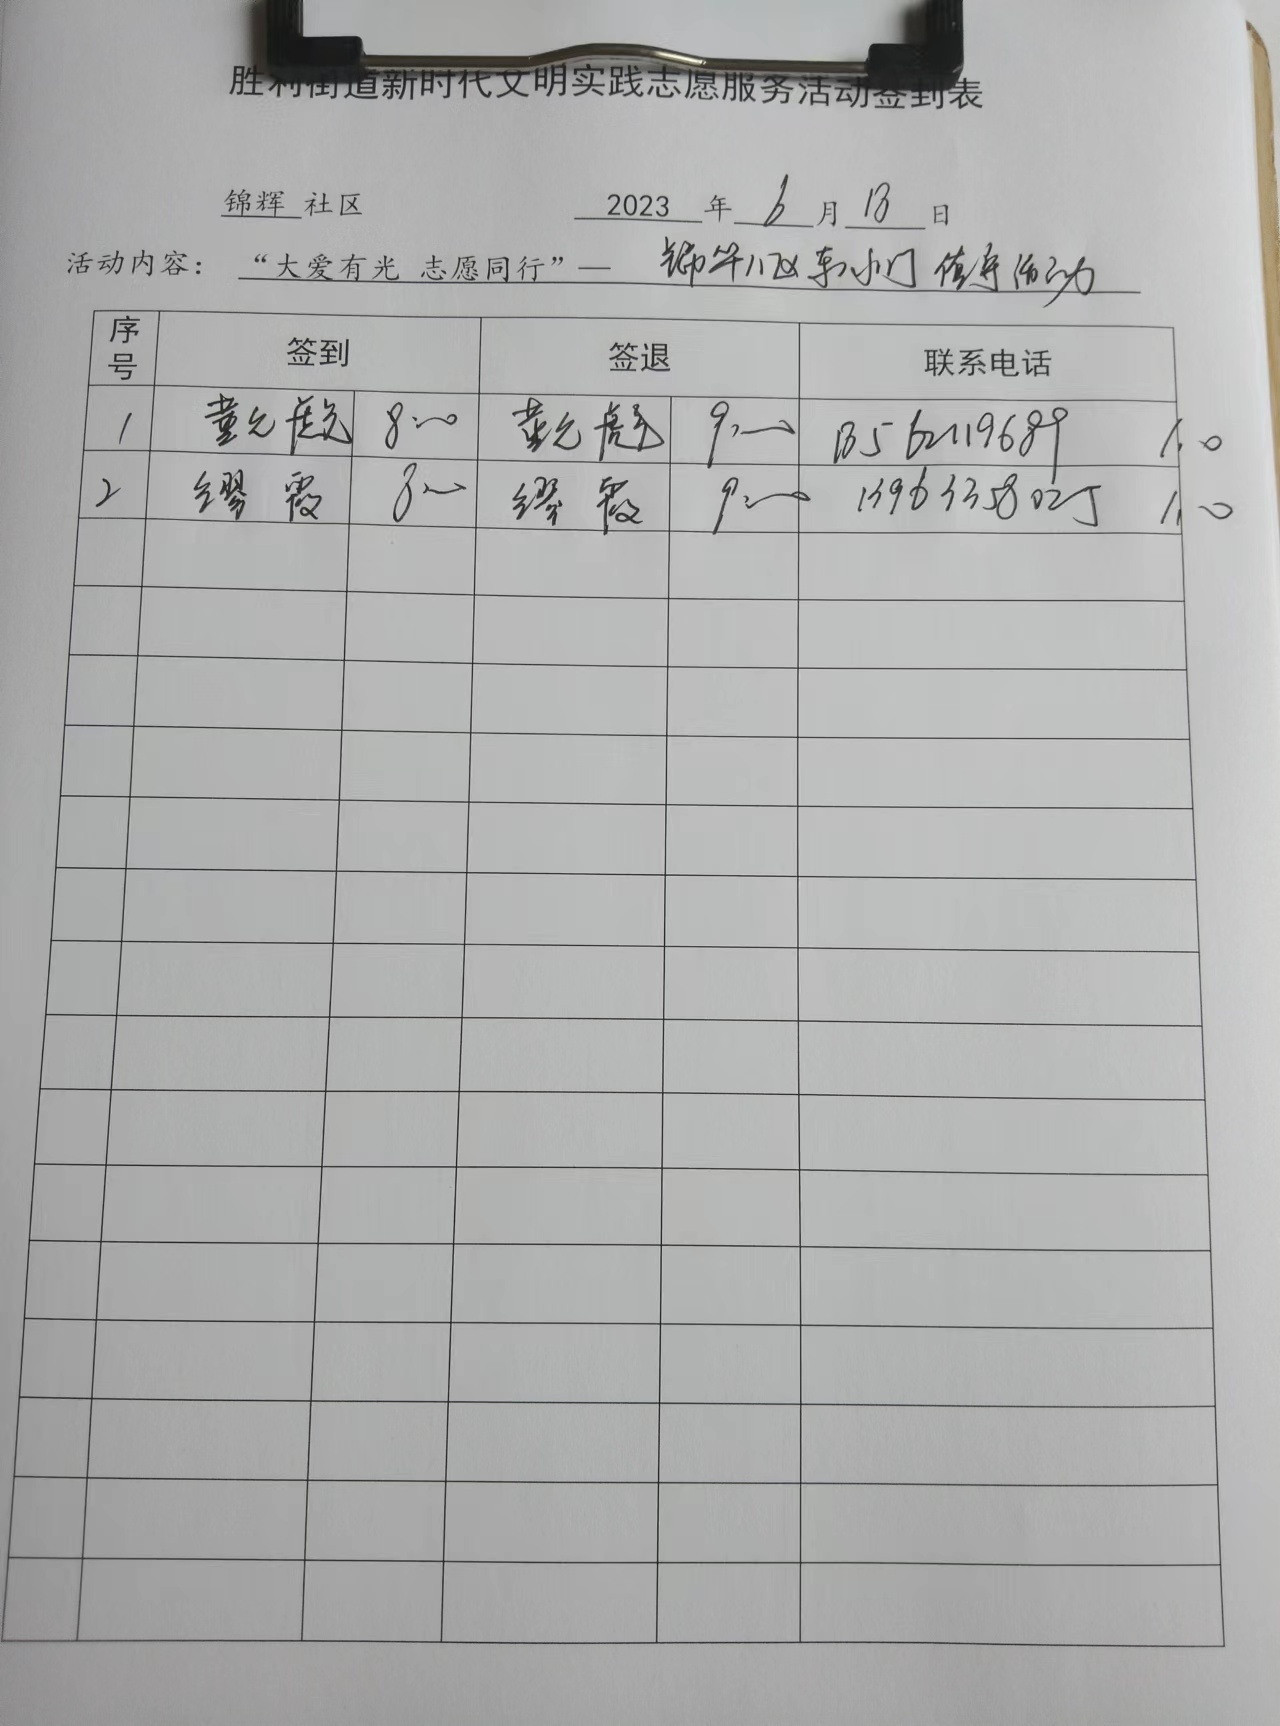 胜利街道新时代文明实践志愿服务活动签到表
锦辉 社区 2023 年 6 月 13 日
活动内容： “大爱有光 志愿同行”— 锦华八区东小门 值守活动
序号 签到 签退 联系电话
1 董允虎 8:00 董允虎 9:00 13562119689 1.0
2 缪霞 8:00 缪霞 9:00 1.0